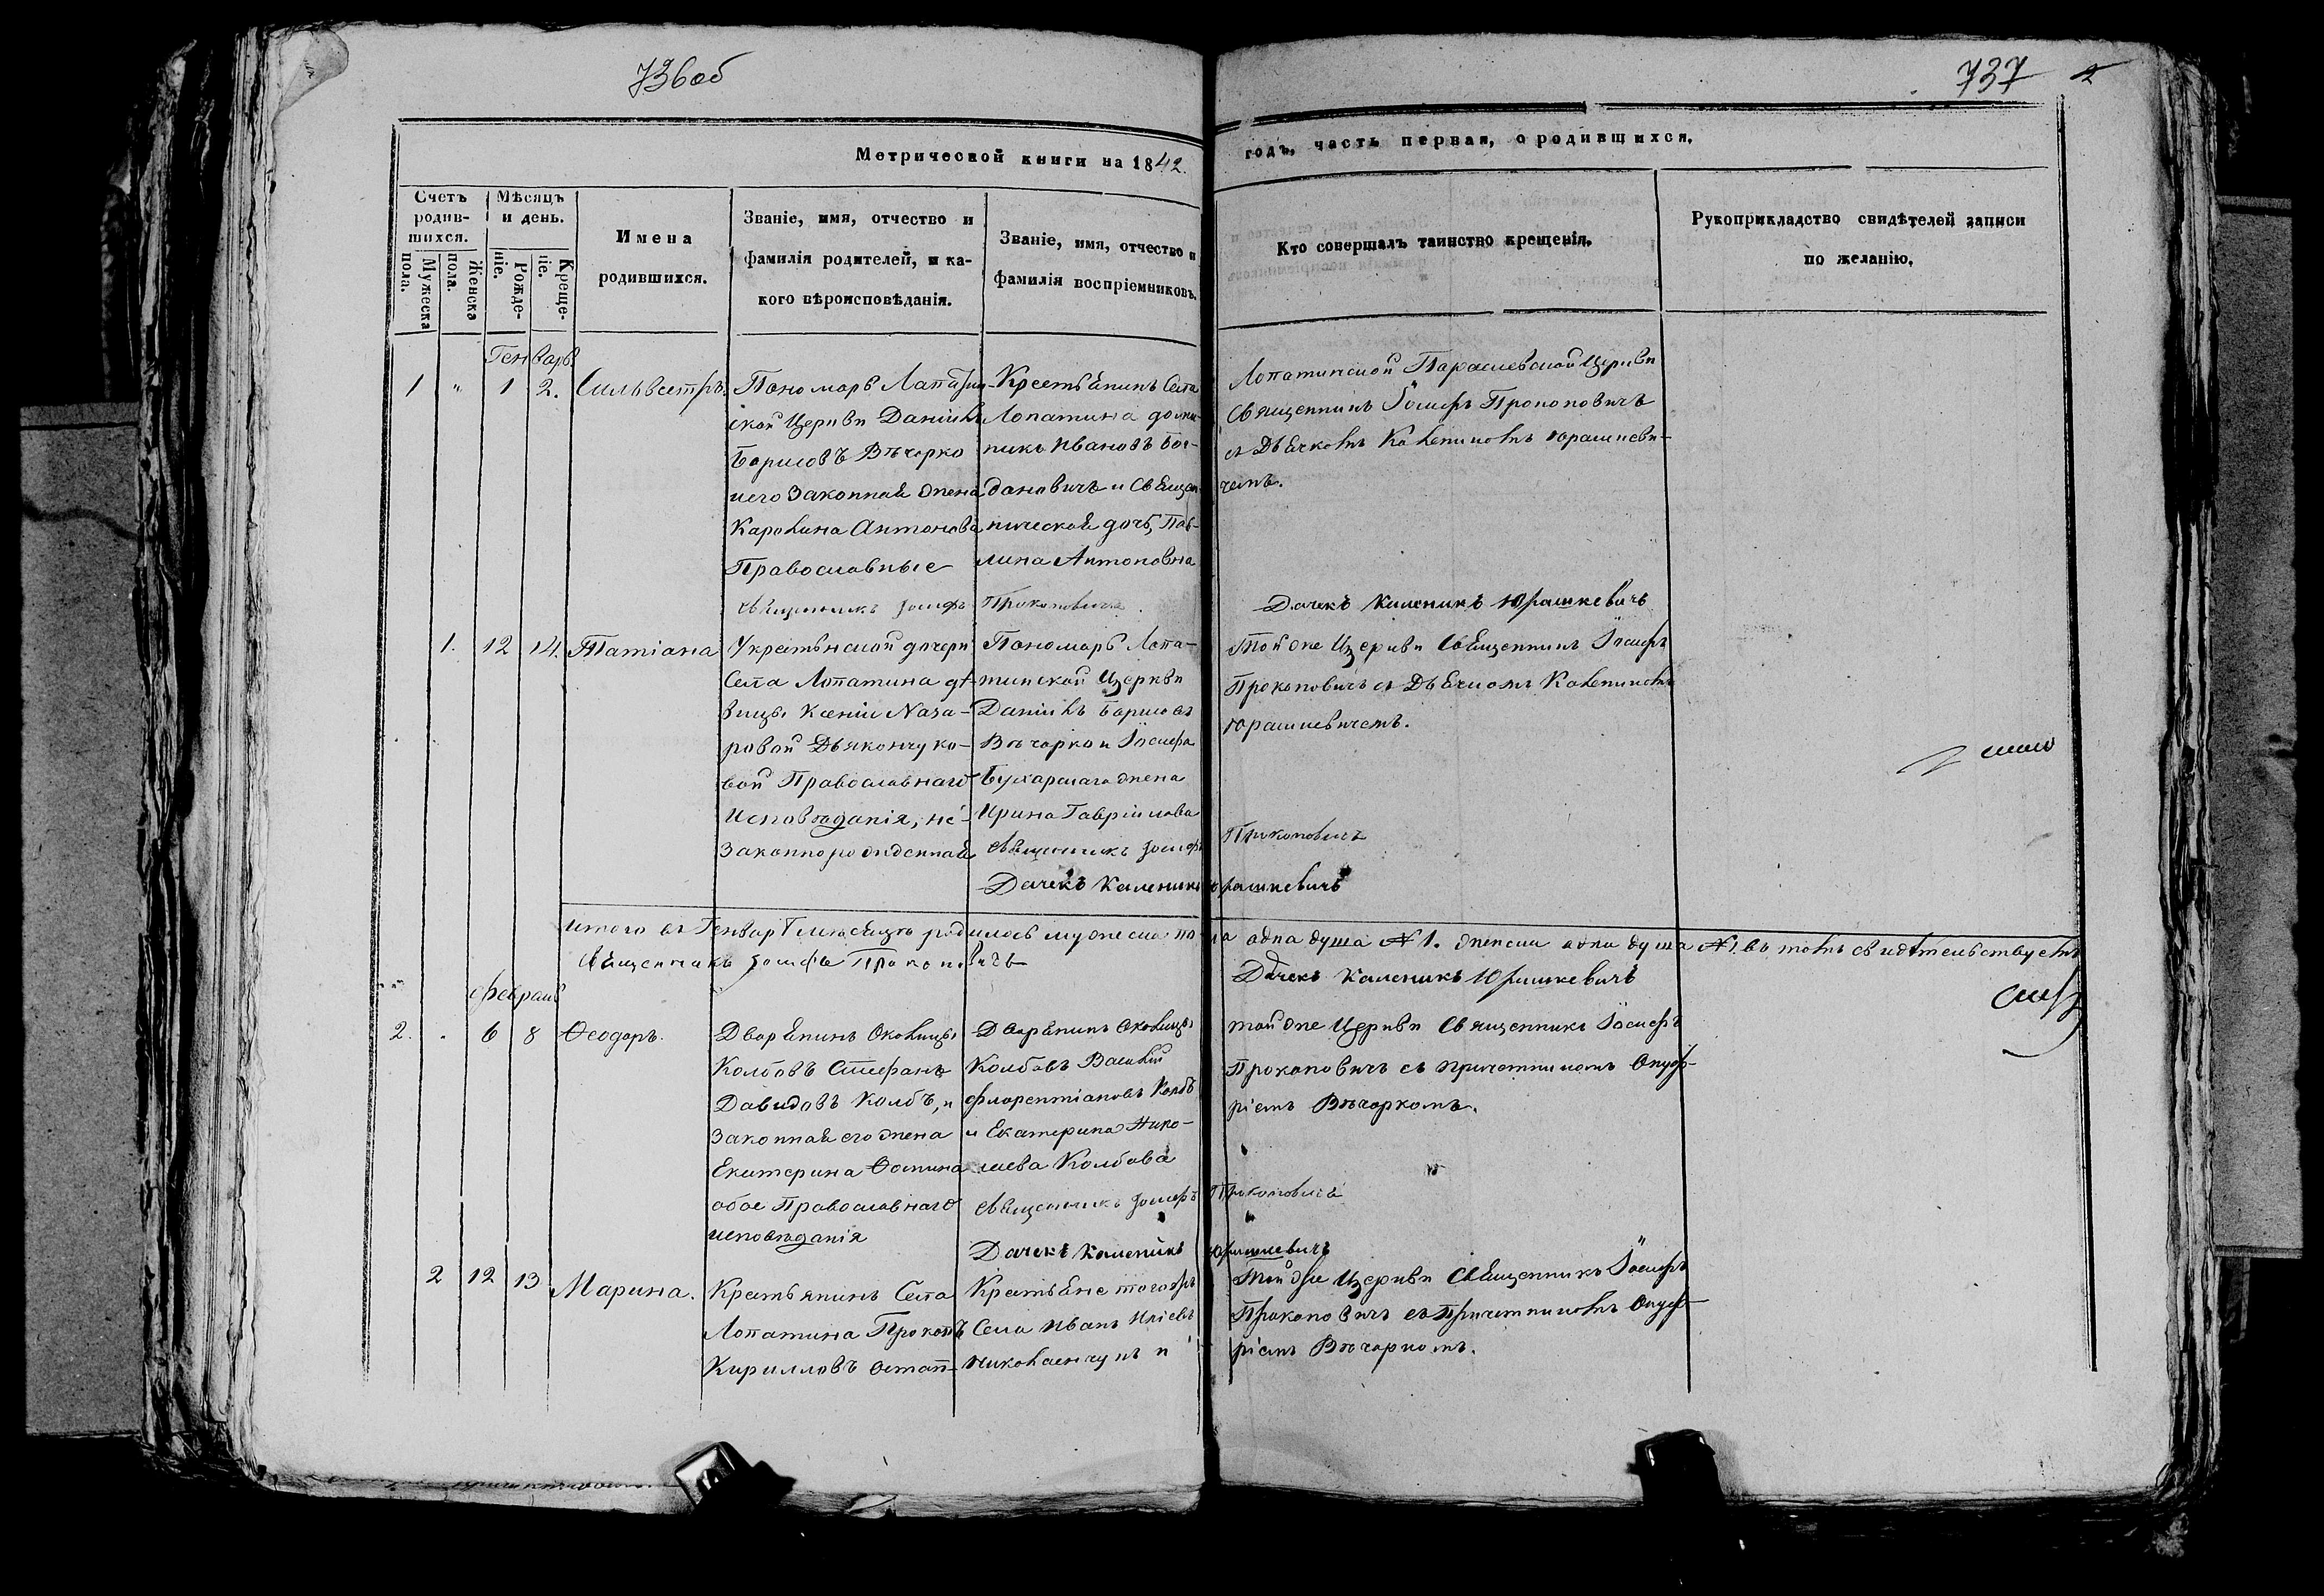 736об
737 2
Метрической книги на 1842.
годъ, часть первая, о родившихся.
Счетъ родив-шихся.
Мужеска пола.
Женска пола.
Мѣсяцъ и день.
Рожде-ніе.
Креще-ніе.
Имена
родившихся.
Званіе, имя, отчество и
фамилія родителей, и ка-
кого вѣроисповѣданія.
Званіе, имя, отчество и
фамилія воспріемниковъ.
Кто совершалъ таинство крещенія.
Рукоприкладство свидѣтелей записи
по желанію.
Генварь
1 " 1 2. Сильвестръ.
Пономарь Лапатин-
ской Церкви Даніилъ
Борисовъ Вѣчорко
и его Законная жена
Каролина Антонова
Православные
Крестьянинъ Села
Лопатина
Ивановъ Бог-
дановичъ и Священ-
ническая дочь, Пав-
лина Антоновна
Лопатинской Параскевской Церкви
Священникъ Іосифъ Прокоповичъ
съ Дьячкомъ Калеником Юрашкеви-
чемъ.
Священникъ Іосифъ Прокоповичъ.
Дячекъ Каленикъ Юрашкевичъ
1. 12 14. Татіана
У крестьянской дочери
Села Лопатина дѣ-
вицы Ксеніи Наза-
ровой Дьякончуко-
вой Православнаго
Исповѣданія, не-
Законнорожденная
Пономарь Лопа-
тинской Церкви
Даніилъ Борисовъ
Вѣчорко и Іосифа
Бухарскаго жена
Ирина Гавріилова
Той же Церкви Священникъ Іосифъ
Прокоповичъ съ Дьячкомъ Каленикомъ
Юрашкевичемъ.
Священникъ Іосифъ Прокоповичъ
Дячекъ Каленикъ Юрашкевичъ
Итого въ Генварѣ мѣсяцѣ родилось мужеска пола одна душа № 1. женска одна душа № 1. въ томъ свидѣтельствуемъ
Священникъ Іосифъ Прокоповичъ
Дячекъ Каленикъ Юрашкевичъ
Февраль
2. . 6 8 Ѳеодоръ.
Дворянинъ Околицы
Колбовъ Стефанъ
Давидовъ Колбъ, и
Законная его жена
Екатерина Ѳомина
обое Православнаго
исповѣданія
Дворянинъ Околицы
Колбовъ Василій
Флорентіановъ Колбъ
и Екатерина Нико-
лаева Колбова
той же Церкви Священникъ Іосифъ
Прокоповичъ съ причетникомъ Онуф-
ріемъ Вѣчоркомъ.
Священникъ Іосифъ Прокоповичъ
Дячекъ Каленикъ Юрашкевичъ
2 12 13 Марина.
Крестьянинъ Села
Лопатина Прокопъ
Кирилловъ Остап-
Крестьяне тогожъ
Села Иванъ Иліевъ
Николаенчукъ и
Той же Церкви Священникъ Іосифъ
Прокоповичъ съ Причетникомъ Онуф-
ріемъ Вѣчоркомъ.